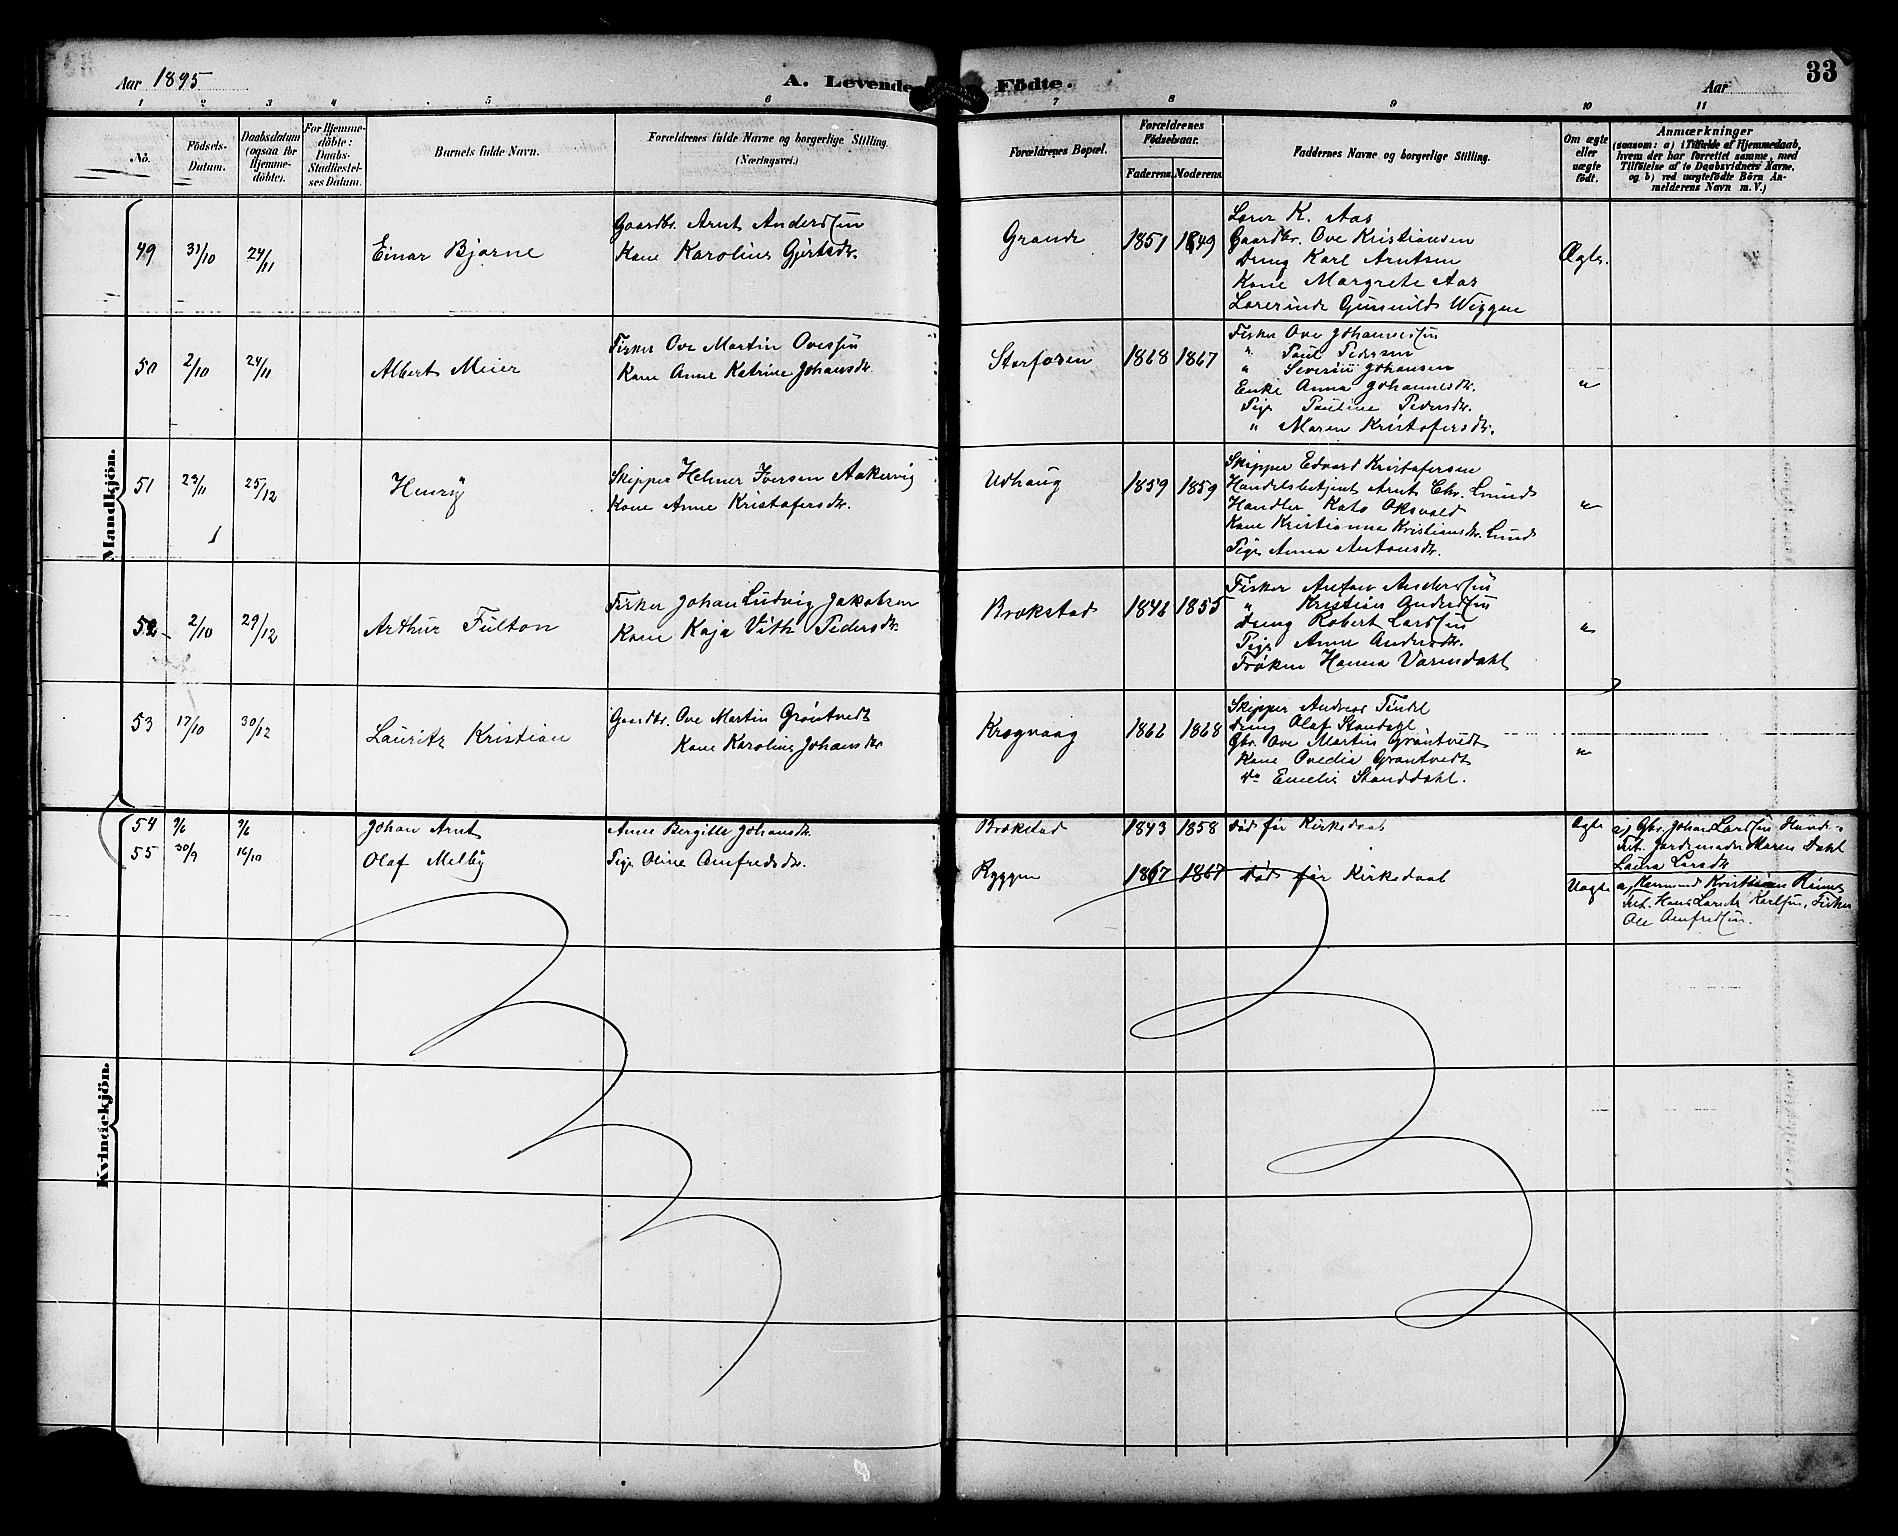 33
Aar 1895
A. Levende Fødte.
Aar
1 2 3 4 5 6 7 8 9 10 11
No.
Födsels-Datum.
Daabsdatum (ogsaa for Hjemme-döbte).
For Hjemme-döbte: Daabs-Stadfestel-ses Datum.
Barnets fulde Navn.
Forældrenes fulde Navne og borgerlige Stilling (Næringsvei.)
Forældrenes Bopæl.
Forældrenes Födselsaar.
Faderens. Moderens.
Faddernes Navne og borgerlige Stilling.
Om ægte eller uægte födt.
Anmærkninger
(saasom: a) i Tilfælde af Hjemmedaab,
hvem der har forrettet samme, med
Tilföielse af to Daabsvidners Navne,
og b) ved uægtefödte Börn An-
melderens Navn m. V.)
Mandkjön.
49 31/10 24/11 Einar Bjarne
Gaardbr. Arnt Anderssen
Kone Karoline Gjertsdr.
Grande 1851 1849
Lærer K. Aas
Gaardbr. Ove Kristiansen
Dreng Karl Arntsen
Kone Margrete Aas
Lærerinde Gunhild Wiggen
Ægte.
50 2/10 24/11 Albert Meier
Fisker Ove Martin Ovesen
Kone Anne Katrine Johansdr.
Storfosen 1868 1867
Fisker Ove Johannessen
" Paul Pedersen
" Severin Johansen
Enke Anna Johannesdr.
Pige Pauline Pedersdr.
" Maren Kristofersdr.
"
51 23/11 25/12 Henry
Skipper Helmer Iversen Aakervig
Kone Anne Kristofersdr.
Udhaug 1859 1859
Skipper Edvard Kristofersen
Handelsbetjent Arnt Chr. Lund
Handler Kato Oksvold
Kone Kristianna Kristiansdr. Lund
Pige Anna Antonsdr.
"
52 2/10 29/12 Arthur Fulton
Fisker Johan Ludvig Jakobsen
Kone Kaja Vith Pedersdr.
Brækstad 1842 1855
Fisker Anton Anderssen
" Kristian Anderssen
Dreng Robert Larssen
Pige Anne Andersdr.
Frøken Hanna Varmdahl
"
53 17/10 30/12 Lauritz Kristian
Gaardbr. Ove Martin Grøntvedt
Kone Karoline Johansdr
Kragvaag 1862 1868
Skipper Andreas Tindel
Dreng Olaf Standahl
Gbr. Ove Martin Grøntvedt
Kone Ovedia Grøntvedt
do Emelie Standdahl.
"
Kvindekjön.
54 9/6 9/6 Johan Arnt
Anne Bergitte Johansdr.
Brækstad 1843 1858 Død før Kirkedaab
Ægte
a) Gbr. Johan Larssen
Test. Jordemoder Maren Dahl
Laura Larsdr
55 30/9 16/10 Olaf Melby
Pige Oline Arnfredsdr.
Ryggen 1867 1867 Død før Kirkedaab
Uægte
a) Kristian
Test. Hans Karlsen, Fisker
Ole Arnfredsen.